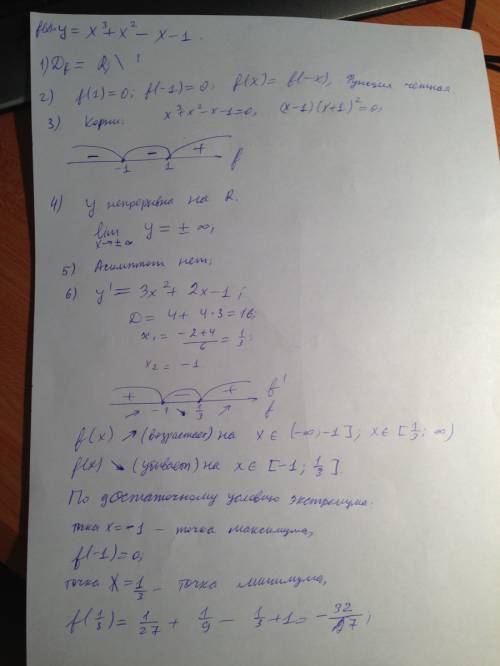 f(x)=y = x³ + x² - x - 1.
1) D_f = R \
2) f(1)=0; f(-1)=0; f(x) = f(-x), Функция чётная
3) Корни: x³+x²-x-1=0, (x-1)(x+1)²=0;
- - + f
-1 1
4) y непрерывна на R.
lim y = ± ∞,
x→±∞
5) Асимптот нет;
6) y' = 3x² + 2x - 1;
D = 4 + 4·3 = 16;
x₁ = (-2+4)/6 = 1/3;
x₂ = -1
+ - + f'
↗ -1 ↘ 1/3 ↗ f
f(x) ↗ (возрастает) на x ∈ (-∞; -1]; x ∈ [1/3; ∞)
f(x) ↘ (убывает) на x ∈ [-1; 1/3].
По достаточному условию экстремума.
тчка x = -1 - точка максимума,
f(-1) = 0;
точка x = 1/3 - точка минимума,
f(1/3) = 1/27 + 1/9 - 1/3 + 1 = -32/27;